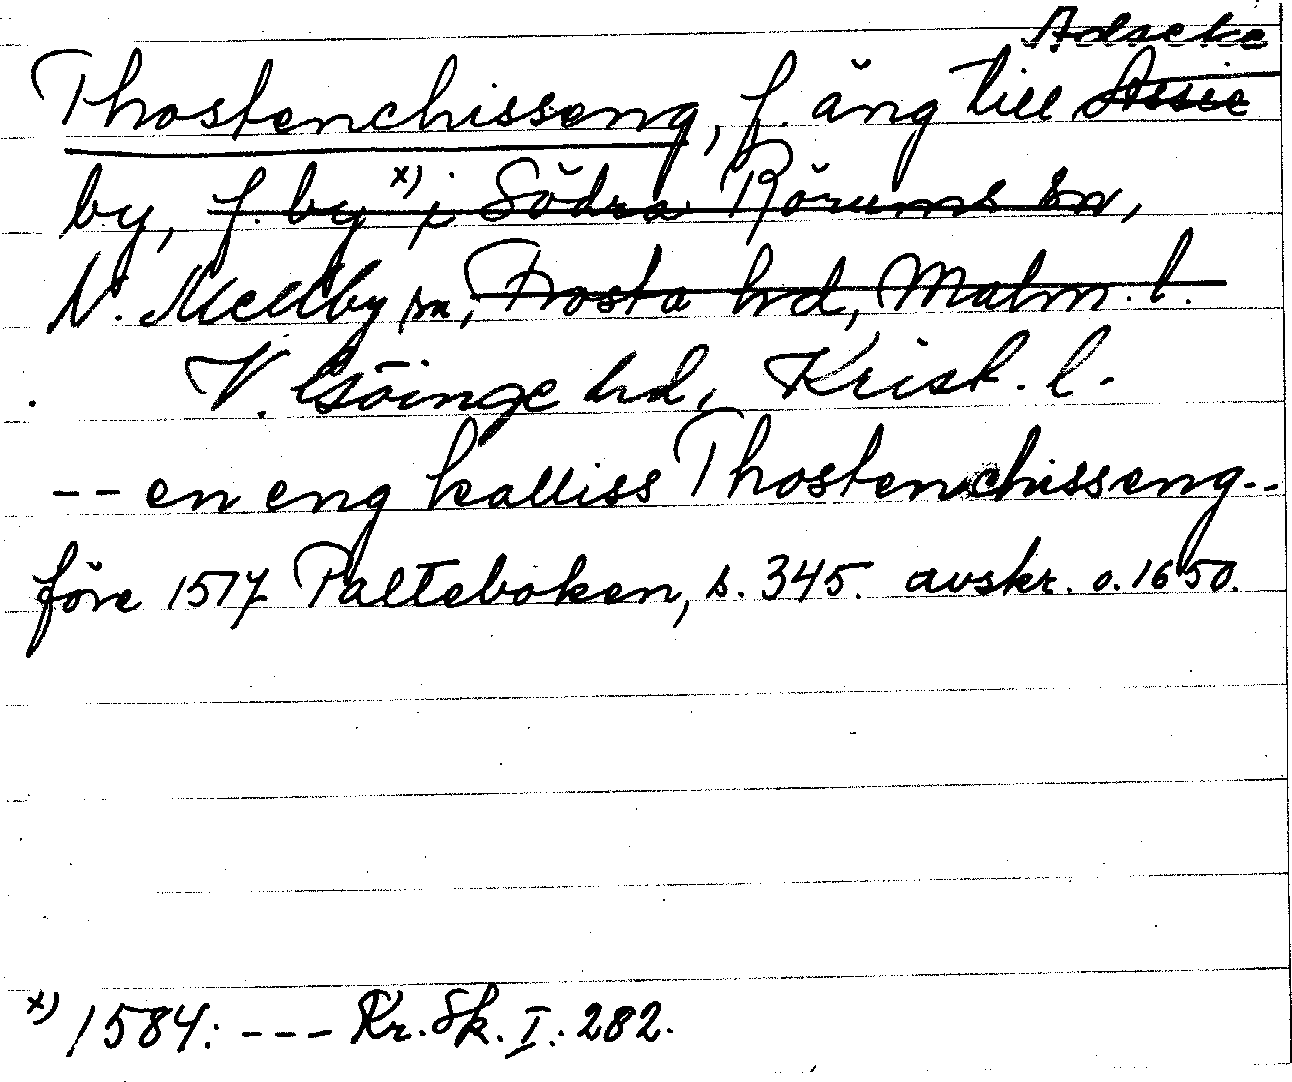 Adseke
Thostenchisseng, f. äng till Assie
by, f. by x) i Södra Rörums sn,
N. Mellby sn, Frosta hrd, Malm. l.
V. Göinge hrd, Krist. l.
-- en eng kalliss Thostenchisseng--
före 1517 Palteboken, s. 345. avskr. o. 1650.
x) 1584: --- Kr. Sk. I: 282.